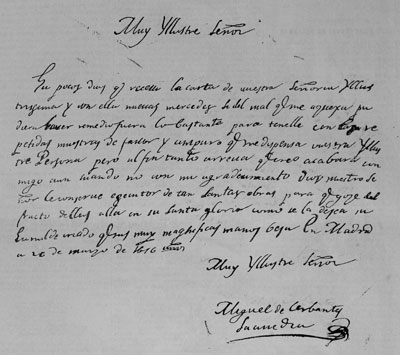 Muy Yllustre Señor
Ha pocos dias q reciui la carta de vuestra Señoria Yllus
trissima y con ella nueuas mercedes si del mal q me aquexa pu
diera hauer remedio fuera lo bastante para tenelle con las re
petidas muestras de fauor y amparo q me dispensa vuestra Yllus
tre Persona pero al fin tanto arrecia q creo acabara con
migo aun cuando no con mi agradecimiento Dios nuestro Se
ñor le conserue executor de tan santas obras para q goze del
fructo dellas alla en su santa gloria como se la desea su
humilde criado q sus muy magnificas manos besa En Madrid
a 26 de marzo de 1616 años
Muy Yllustre Señor
Miguel de Cerbantes
Saauedra